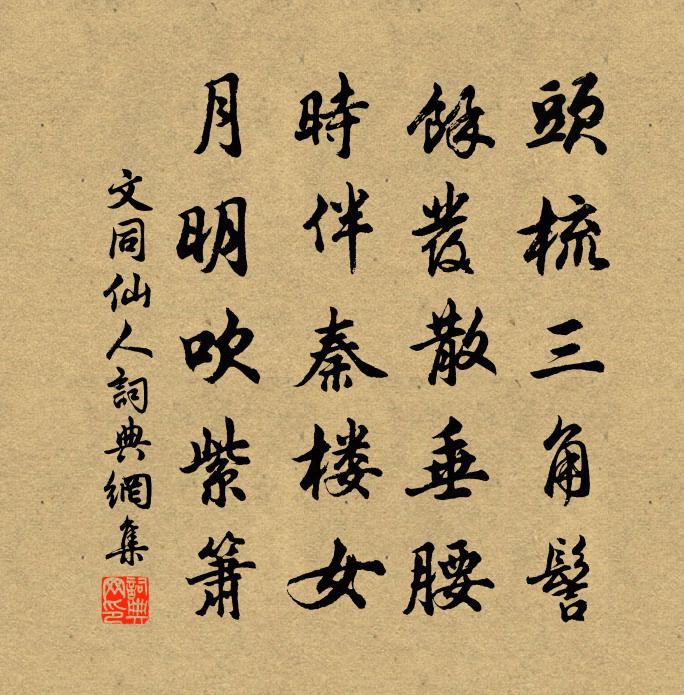 頭梳三角髻
餘發散垂腰
時伴秦楼女
月明吹紫簫
文同仙人詞典網集
詞典网印